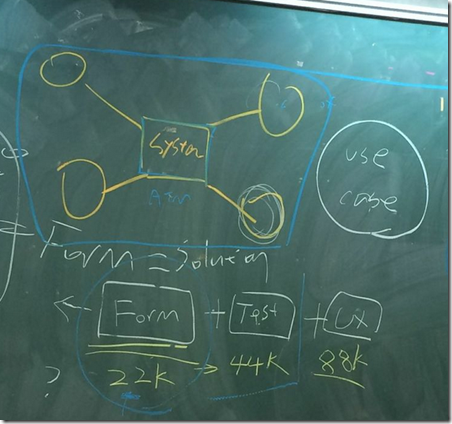 System
use
case
Form = Solution
← Form + Test + UX
22K → 44K 88K
?